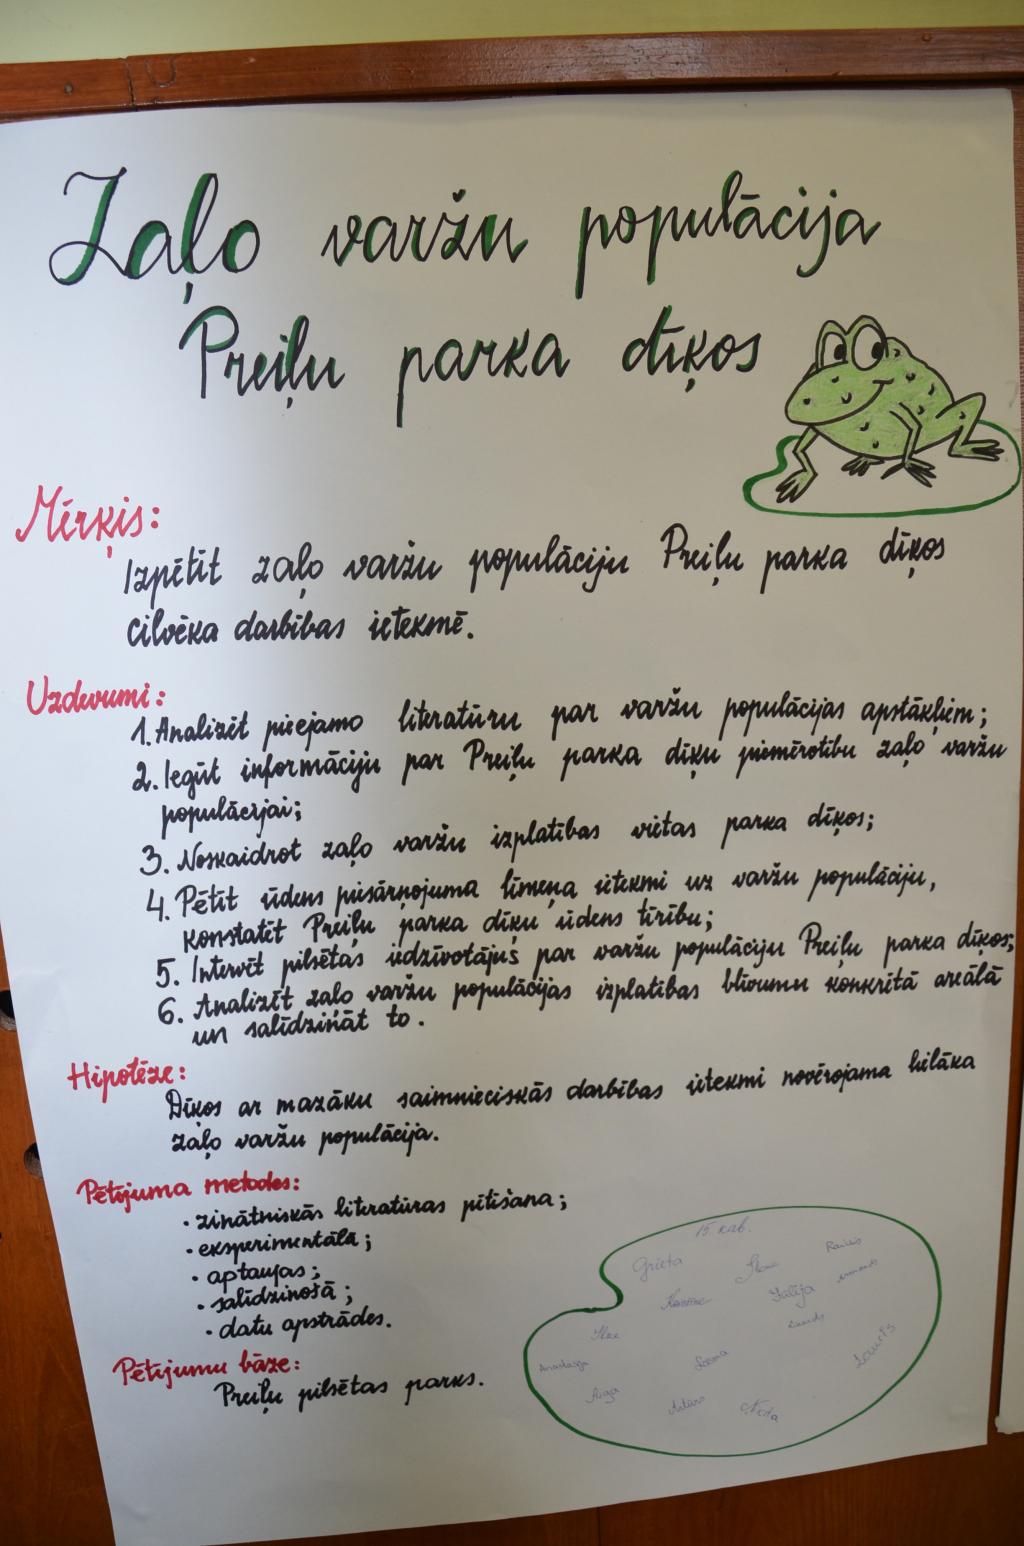 Zaļo varžu populācija
Preiļu parka dīķos
Mērķis:
Izpētīt zaļo varžu populāciju Preiļu parka dīķos
cilvēka darbības ietekmē.
Uzdevumi:
1. Analizēt pieejamo literatūru par varžu populācijas apstākļiem;
2. Iegūt informāciju par Preiļu parka dīķu piemērotību zaļo varžu
populācijai;
3. Noskaidrot zaļo varžu izplatības vietas parka dīķos;
4. Pētīt ūdens piesārņojuma līmeņa ietekmi uz varžu populāciju,
konstatēt Preiļu parka dīķu ūdens tīrību;
5. Intervēt pilsētas iedzīvotājus par varžu populāciju Preiļu parka dīķos;
6. Analizēt zaļo varžu populācijas izplatības blīvumu konkrētā areālā
un salīdzināt to.
Hipotēze:
Dīķos ar mazāku saimnieciskās darbības ietekmi novērojama lielāka
zaļo varžu populācija.
Pētījuma metodes:
· zinātniskās literatūras pētīšana;
· eksperimentālā;
· aptaujas;
· salīdzinošā;
· datu apstrādes.
Pētījumu bāze:
Preiļu pilsētas parks.
15. kab.
Grieta
Jūlija
Ilze
Lauris
Anastasija
Aiga
Artūrs